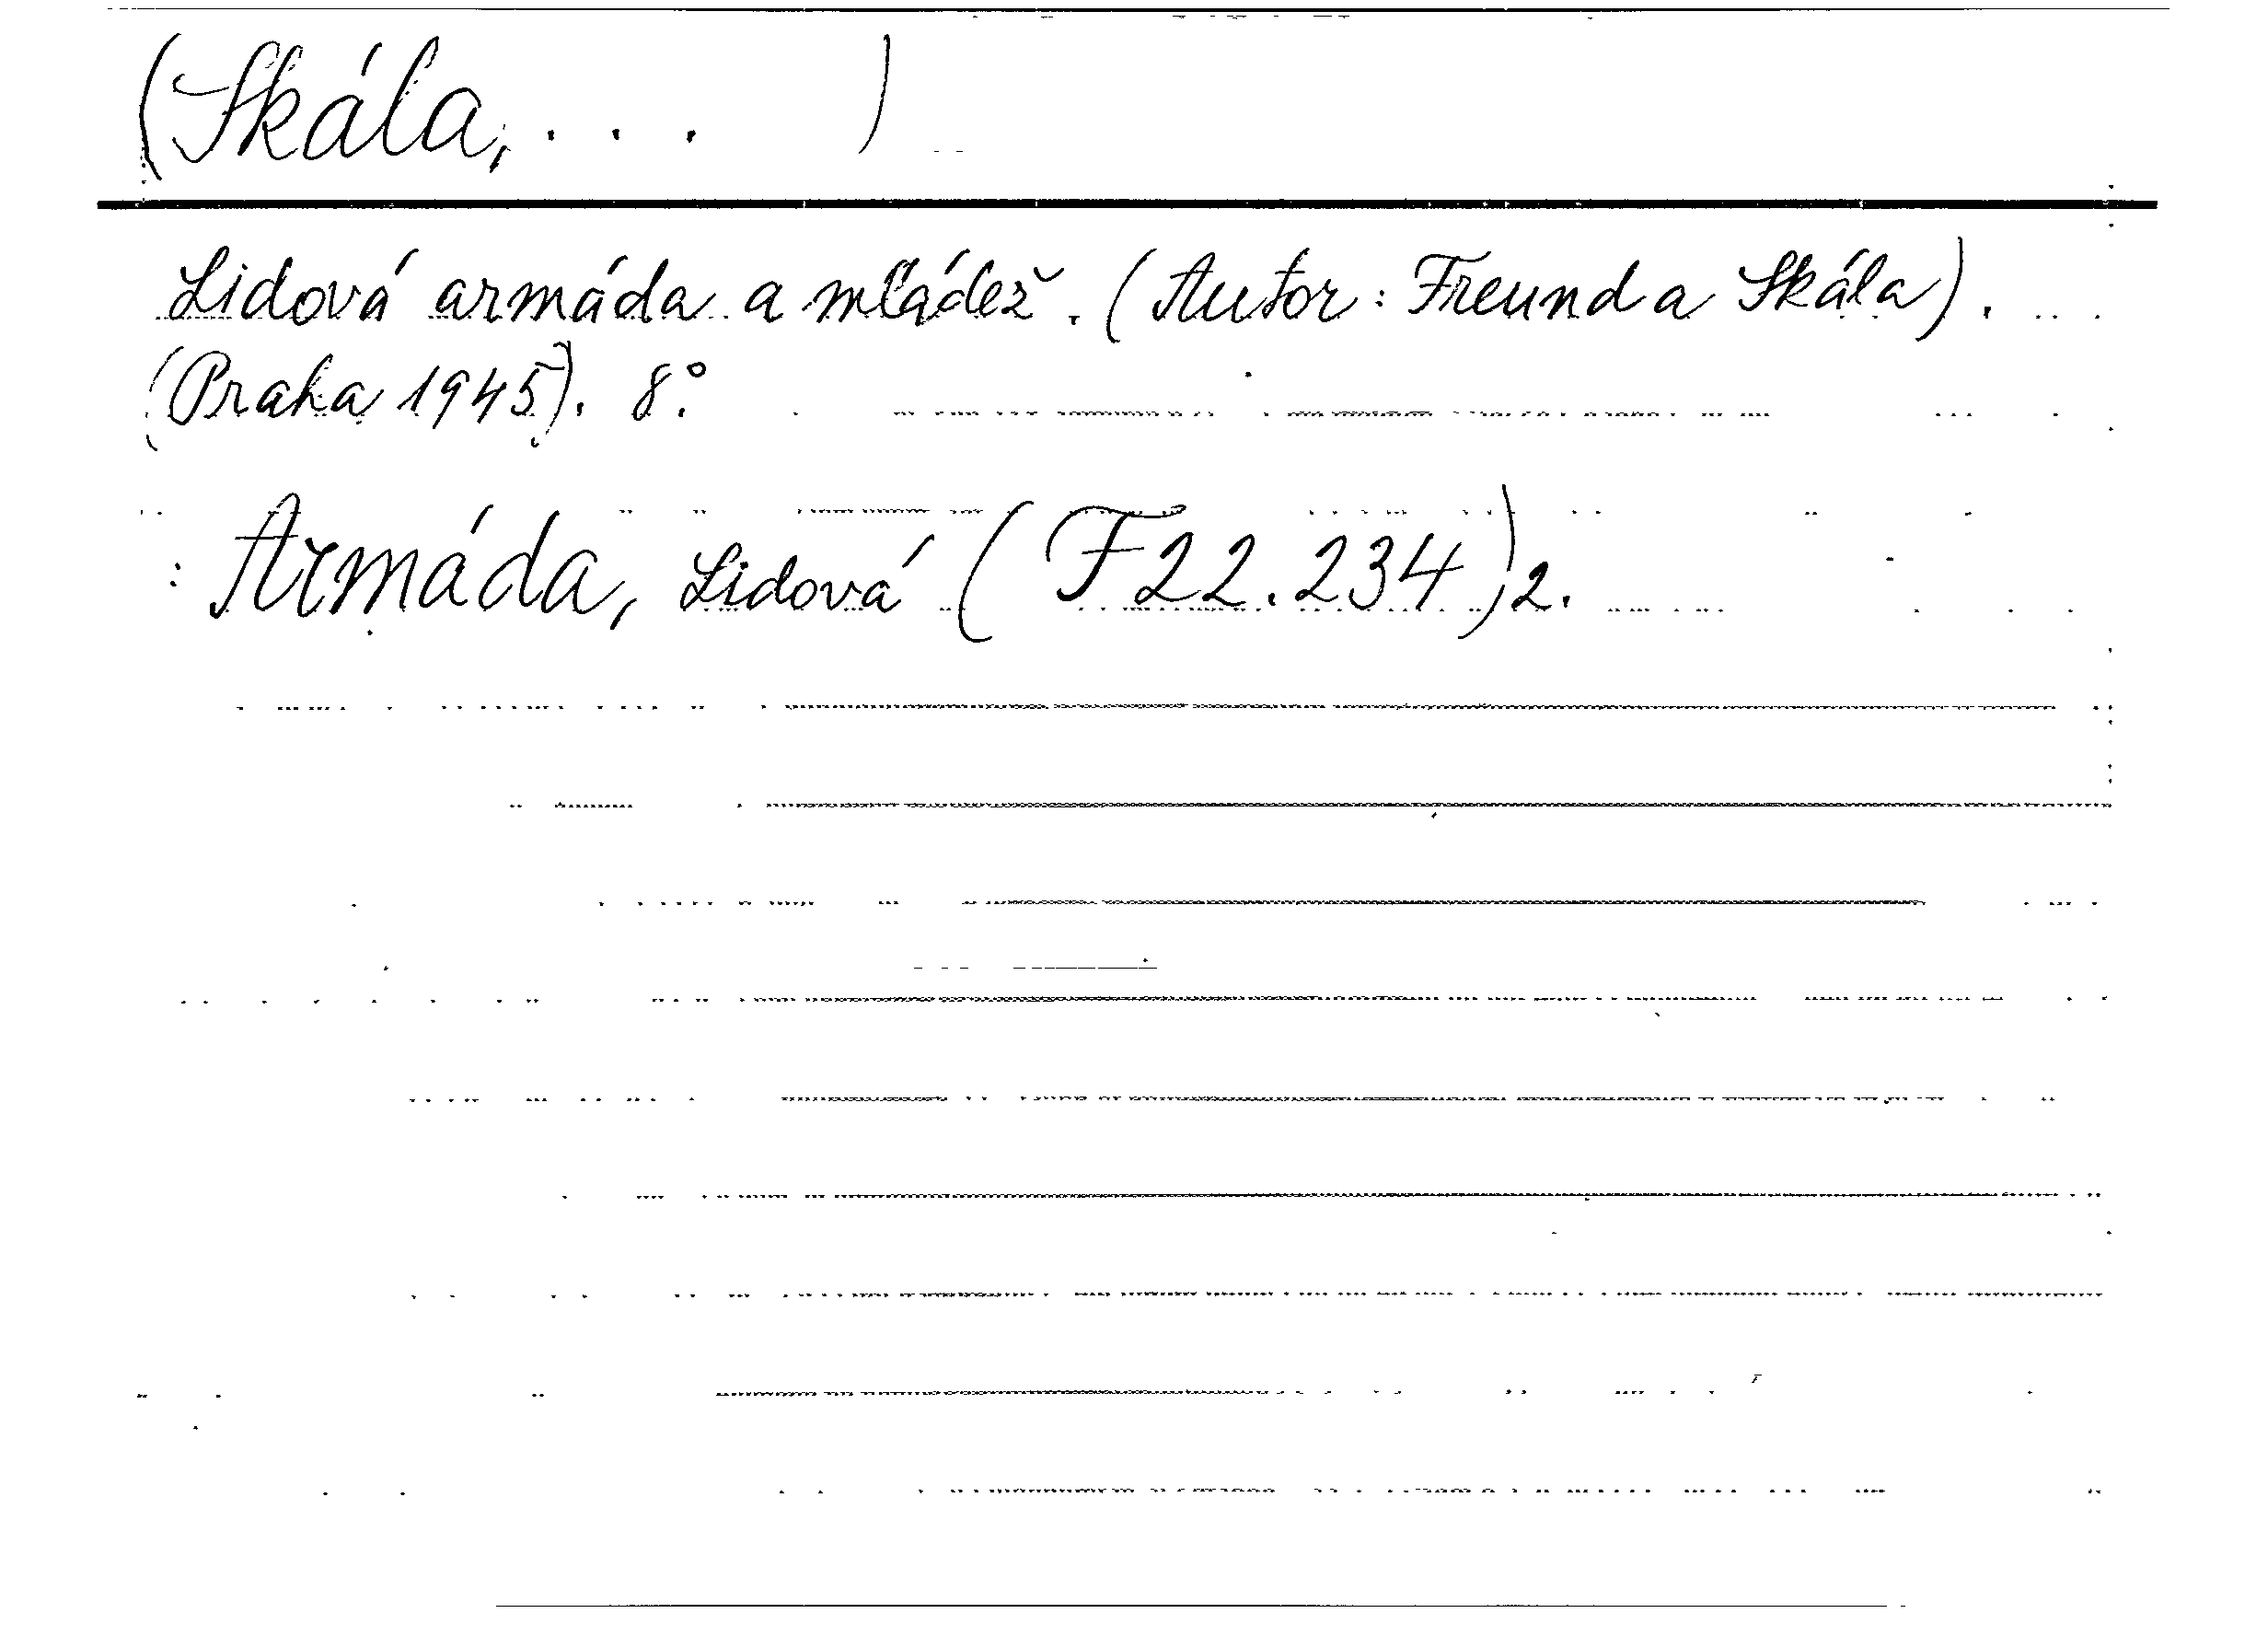 (Skála, . . . )
Lidová armáda a mládež. (Autor: Freund a Skála).
(Praha 1945). 8°.
: Armáda, Lidová (F 22.234) 2.